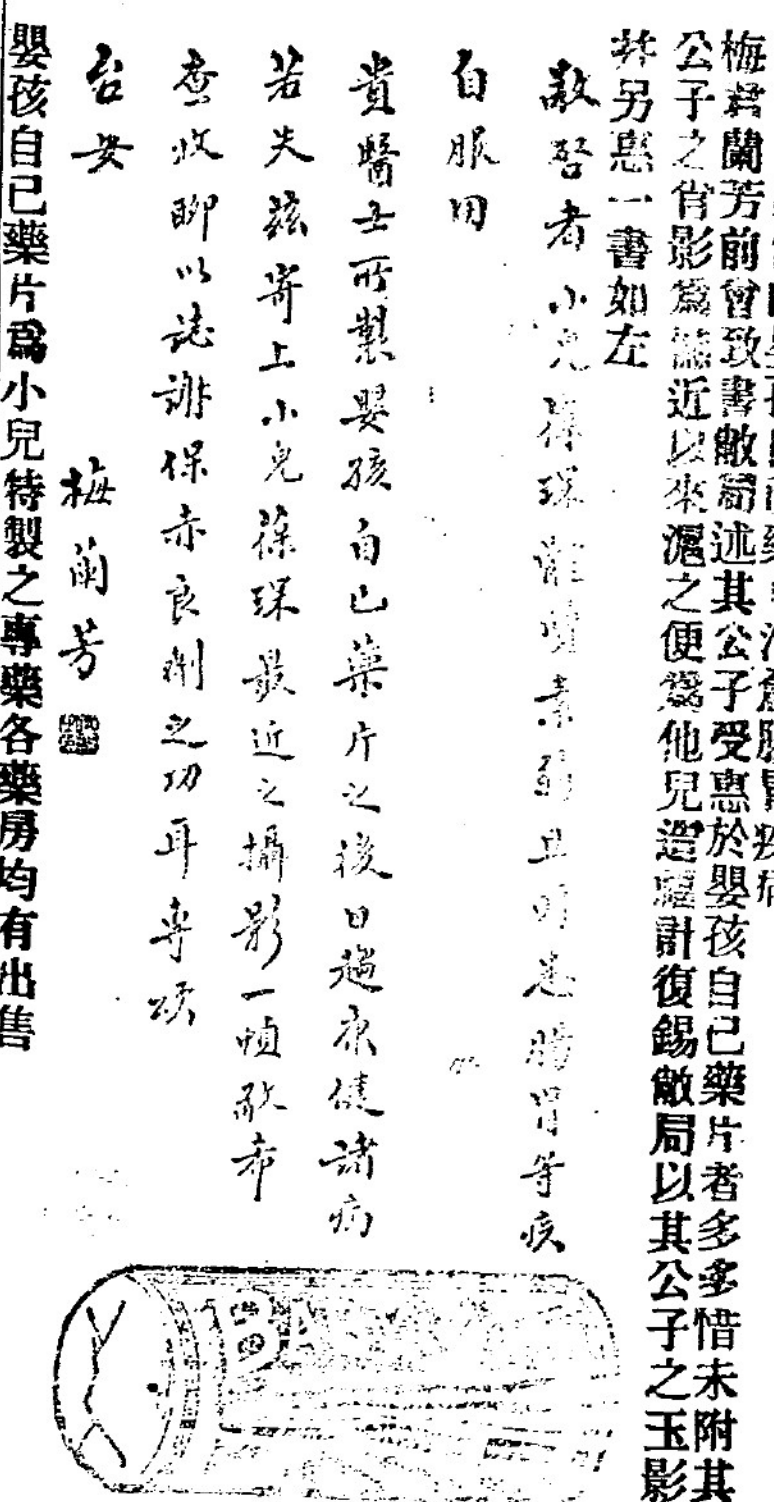 梅君蘭芳前曾致書敝局述其公子受惠於嬰孩自己藥片者多多惜未附其
公子之肖影為憾近以來滬之便為他兒造福計復錫敝局以其公子之玉影
并另惠一書如左
敬啓者小兒葆琛體質素弱且時患腸胃等疾
自服用
貴醫士所製嬰孩自己藥片之後日趨康健諸病
若失茲寄上小兒葆琛最近之攝影一幀敬希
查收聊以誌謝保赤良劑之功耳專頌
台安
梅蘭芳
嬰孩自己藥片爲小兒特製之專藥各藥房均有出售